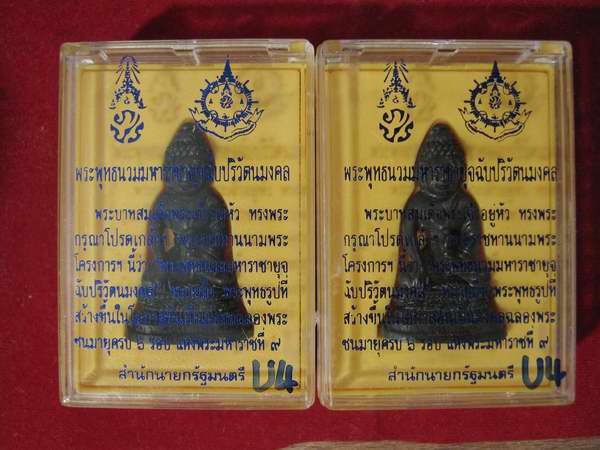 พระพุทธนวมมหาราชายุจฉับปริวัตนมงคล
พระบาทสมเด็จพระเจ้าอยู่หัว ทรงพระ
กรุณาโปรดเกล้าฯ
โครงการฯ นี้ว่า
ฉบับปริวัตนมงคล พระพุทธรูปที่
สร้างขึ้นใน ฉลองพระ
ชนมายุครบ ๖ รอบ แห่งพระมหาราชที่ ๙
สำนักนายกรัฐมนตรี
U4
พระพุทธนวมมหาราชายุจฉับปริวัตนมงคล
พระบาทสมเด็จพระเจ้าอยู่หัว ทรงพระ
กรุณาโปรดเกล้าฯ พระราชทานนามพระ
โครงการฯ นี้ว่า พระพุทธนวมมหาราชายุจ
ฉับปริวัตนมงคล พระพุทธรูปที่
สร้างขึ้นใน ฉลองพระ
ชนมายุครบ ๖ รอบ แห่งพระมหาราชที่ ๙
สำนักนายกรัฐมนตรี
U4